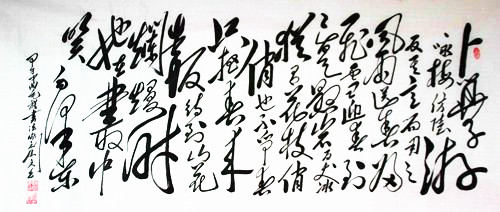 卜算子
咏梅读陆游
反其意而用之
风雨送春归
飞雪迎春到
已是悬崖百丈冰
犹有花枝俏
俏也不争春
只把春来
报待到山花
烂熳时
她在丛中
笑
泽东